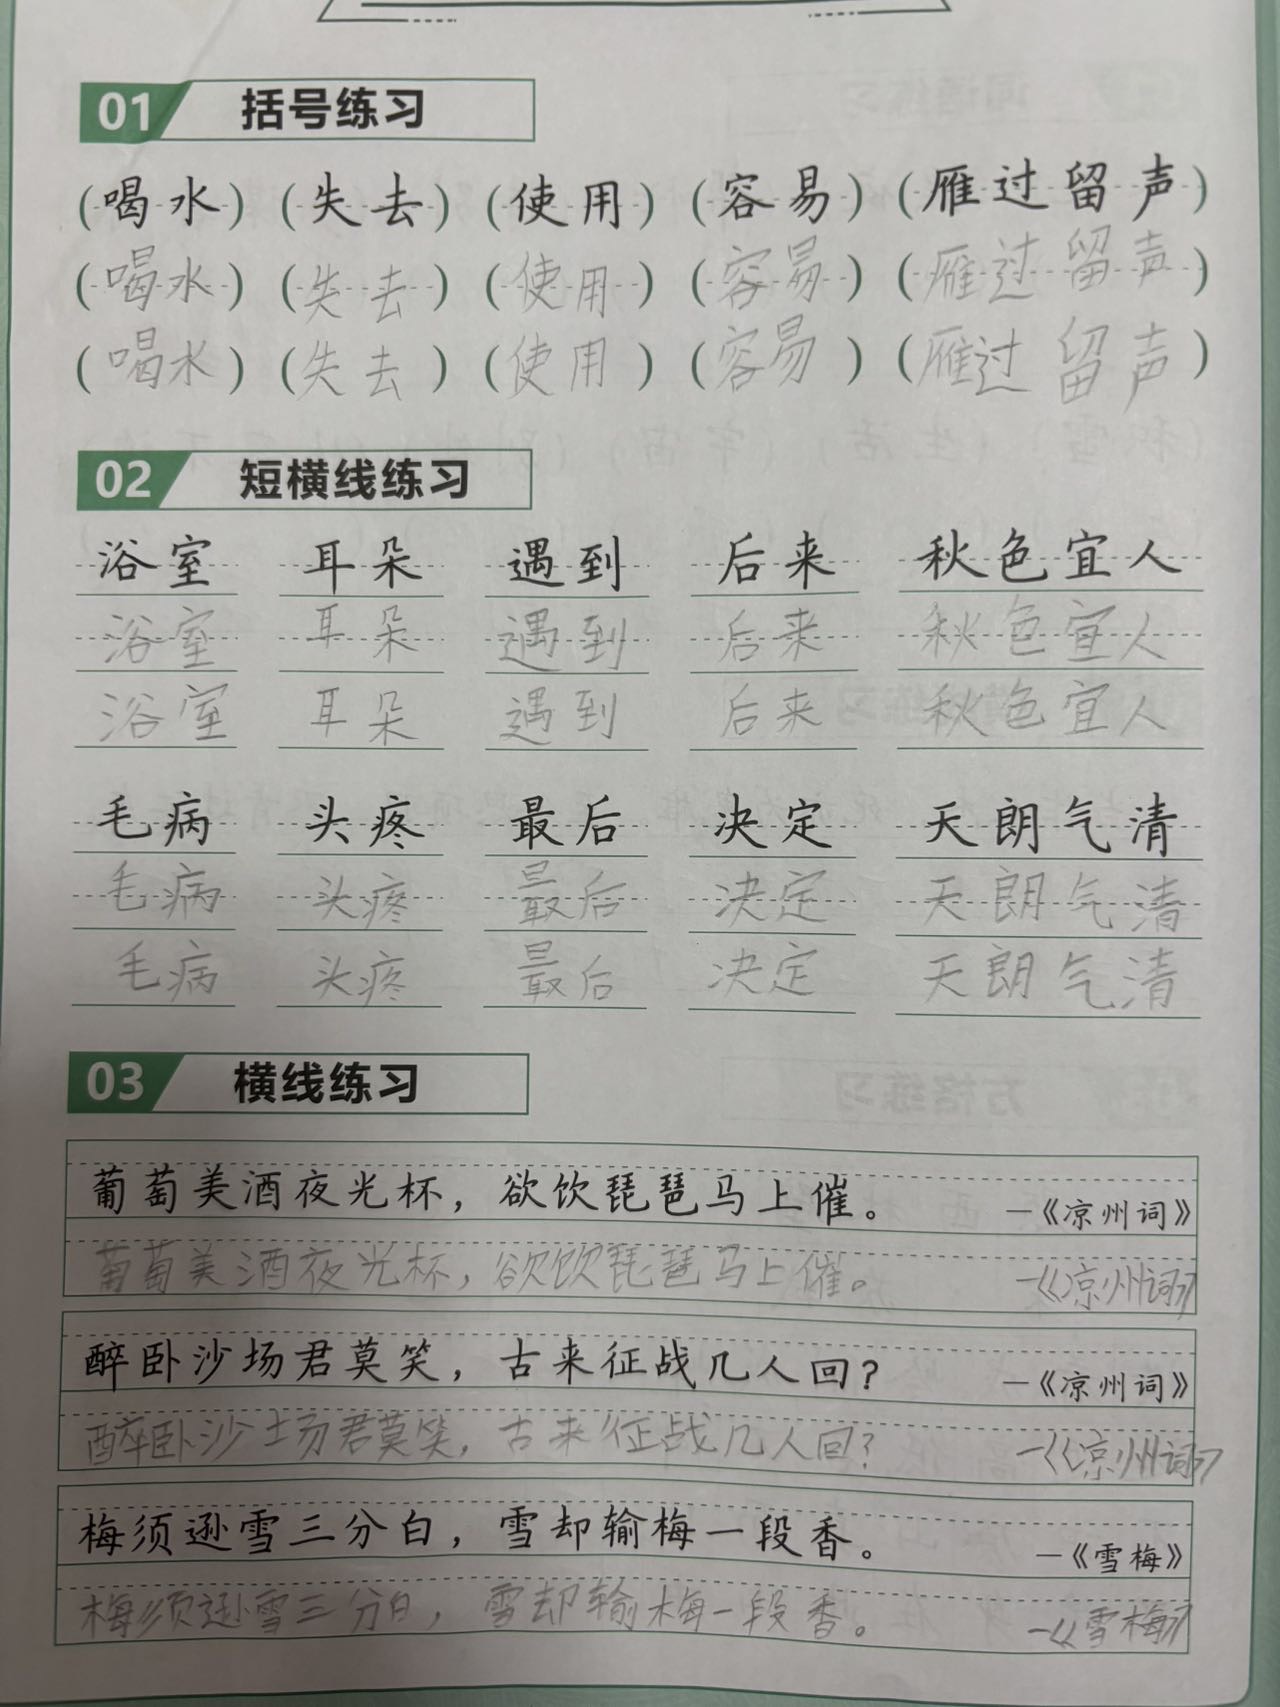 01 括号练习
(喝水) (失去) (使用) (容易) (雁过留声)
(喝水) (失去) (使用) (容易) (雁过留声)
(喝水) (失去) (使用) (容易) (雁过留声)
02 短横线练习
浴室 耳朵 遇到 后来 秋色宜人
浴室 耳朵 遇到 后来 秋色宜人
浴室 耳朵 遇到 后来 秋色宜人
毛病 头疼 最后 决定 天朗气清
毛病 头疼 最后 决定 天朗气清
毛病 头疼 最后 决定 天朗气清
03 横线练习
葡萄美酒夜光杯，欲饮琵琶马上催。 —《凉州词》
葡萄美酒夜光杯，欲饮琵琶马上催。 —《凉州词》
醉卧沙场君莫笑，古来征战几人回？ —《凉州词》
醉卧沙场君莫笑，古来征战几人回？ —《凉州词》
梅须逊雪三分白，雪却输梅一段香。 —《雪梅》
梅须逊雪三分白，雪却输梅一段香。 —《雪梅》